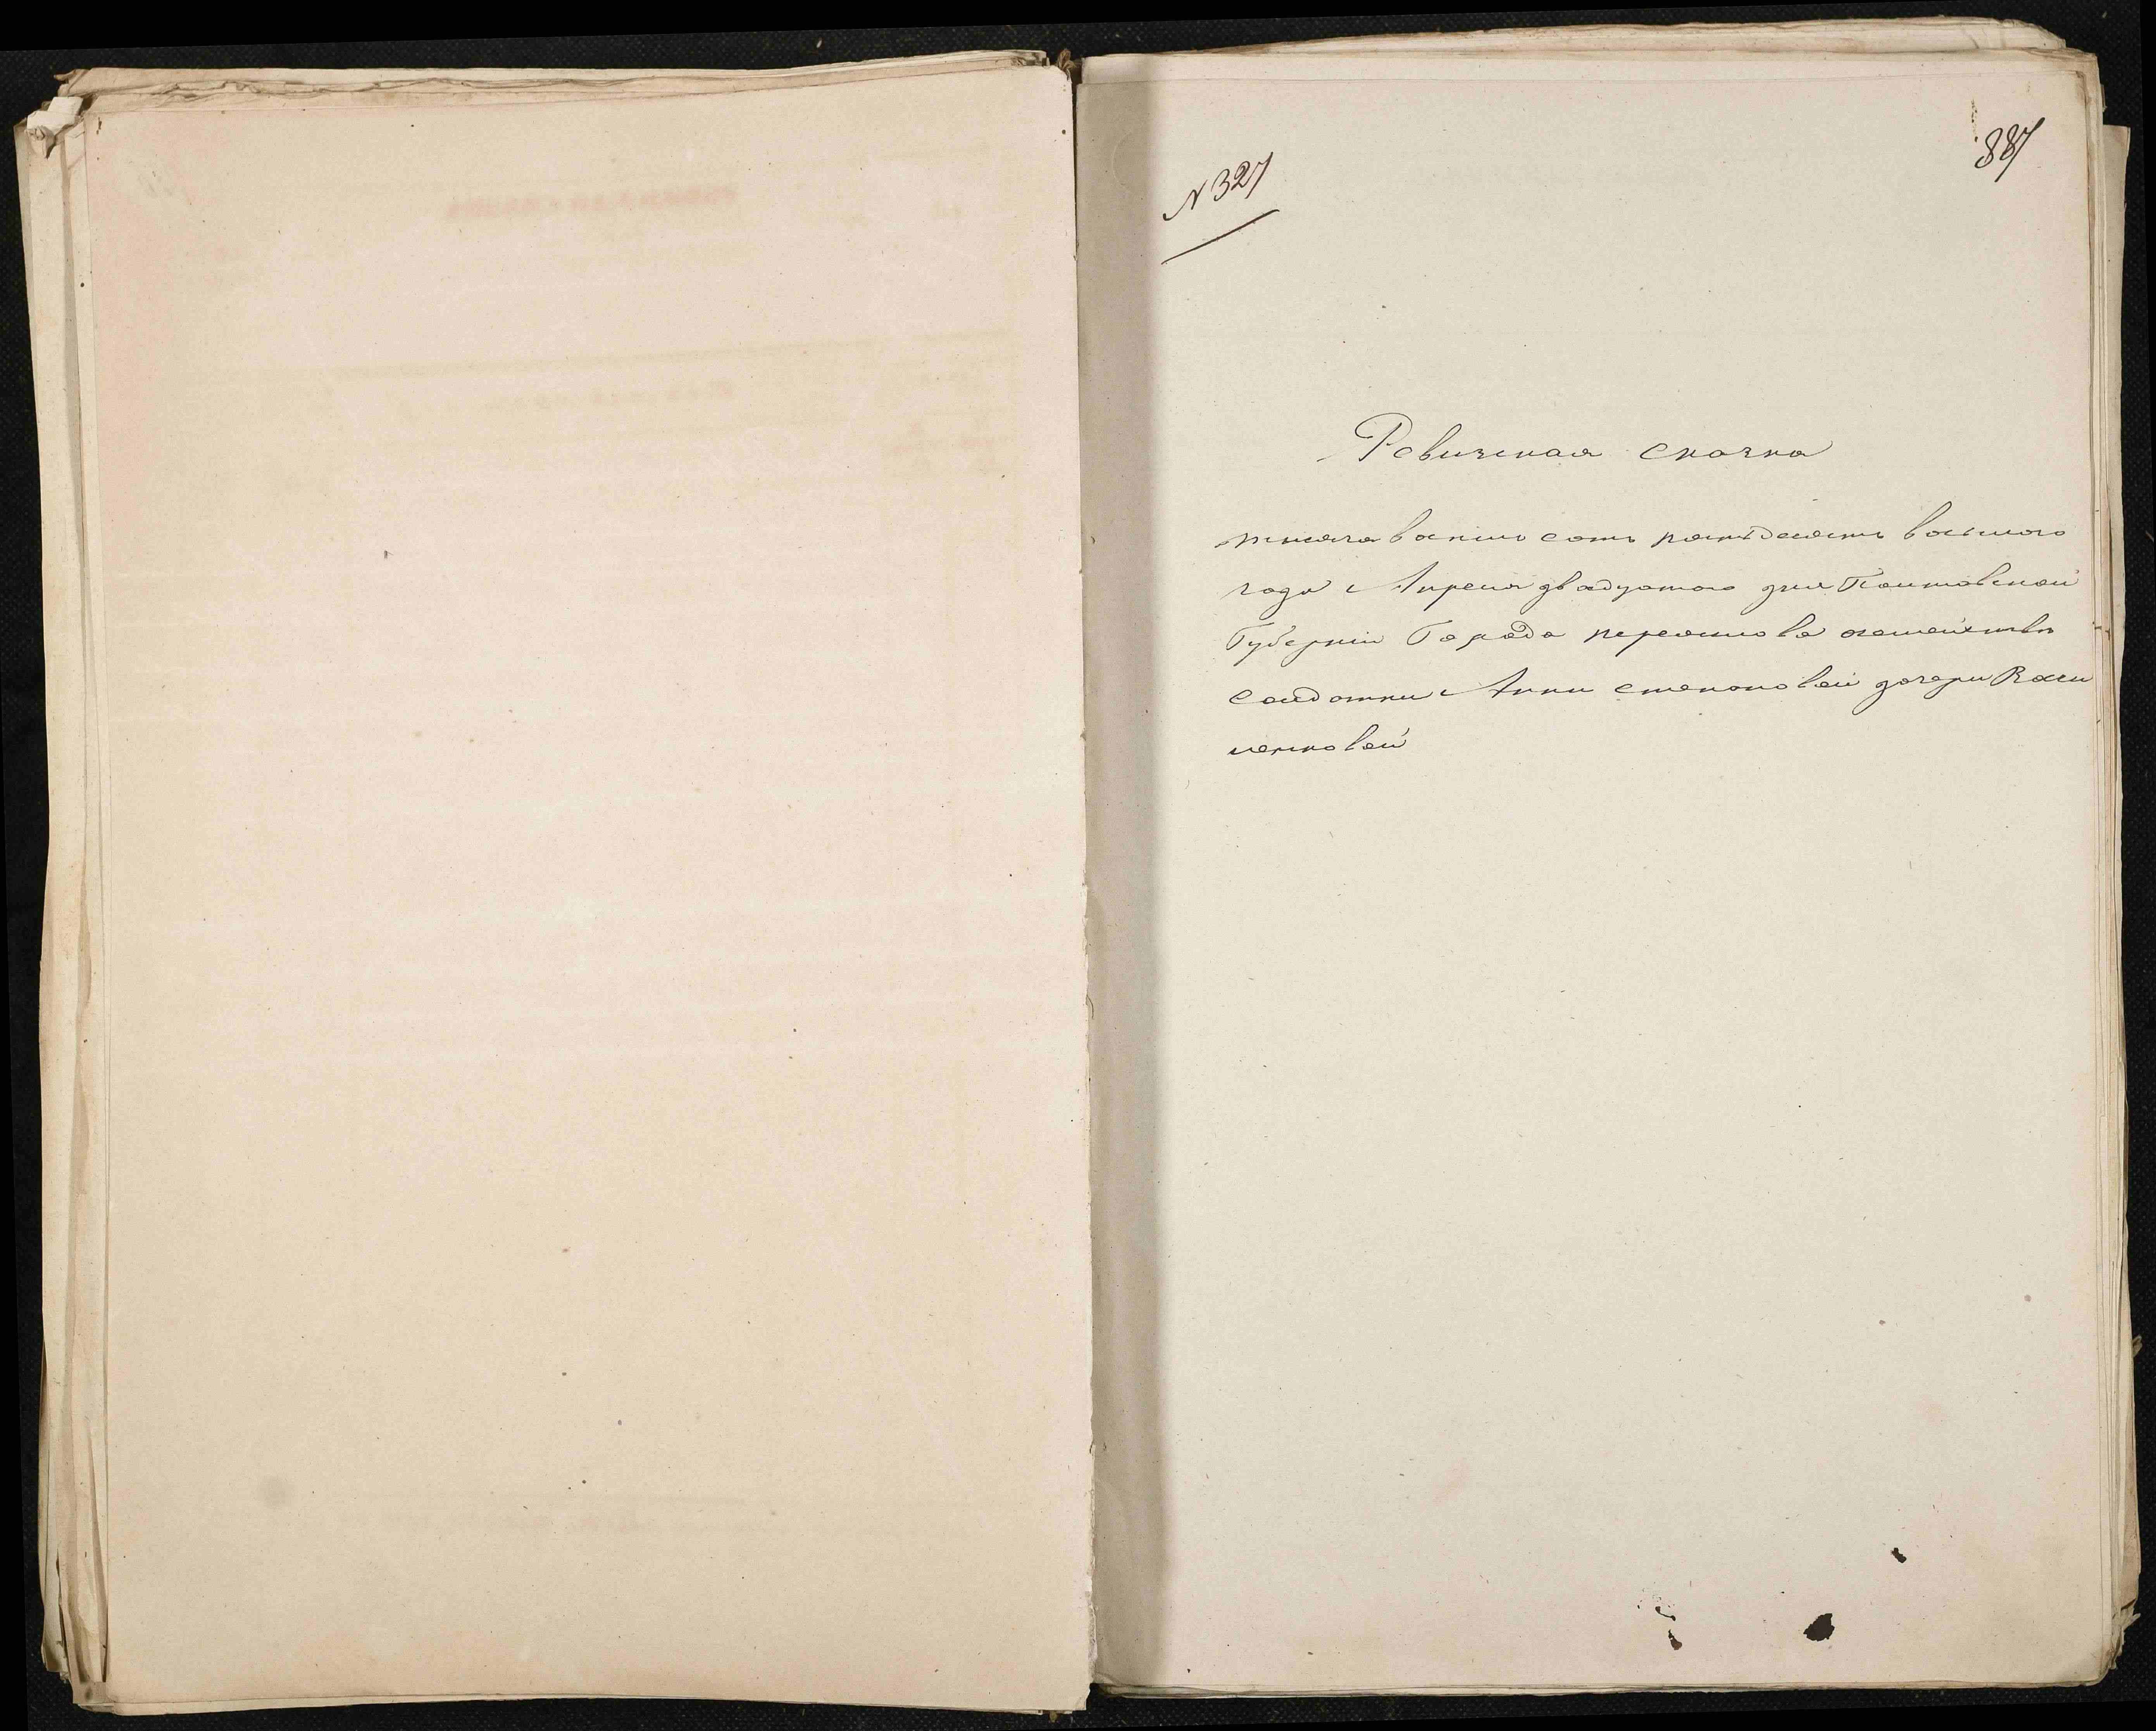 887
N 327
Ревизская сказка
тысяча восимь сотъ пятьдесятъ восьмого
года Апреля двадцатого дня Полтавской
Губернии Города переяслова о семействѣ
солдатки Анни степоновой дочери Васи
ленковой